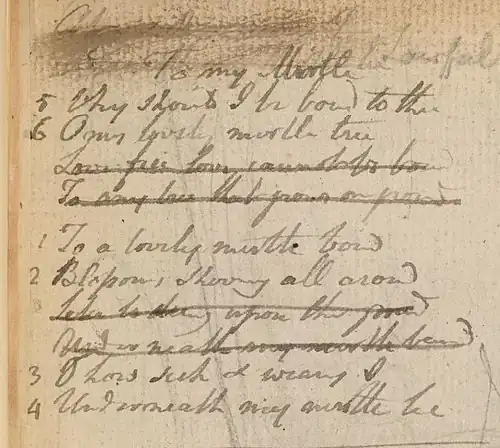 To my Mirtle
5 Why should I be bound to thee
6 O my lovely mirtle tree
Love free love cannot be bound
To any tree that grows on ground
1 To a lovely mirtle bound
2 Blossoms showring all around
Like to dung upon the ground
Underneath my mirtle bound
3 O how sick & weary I
4 Underneath my mirtle lie